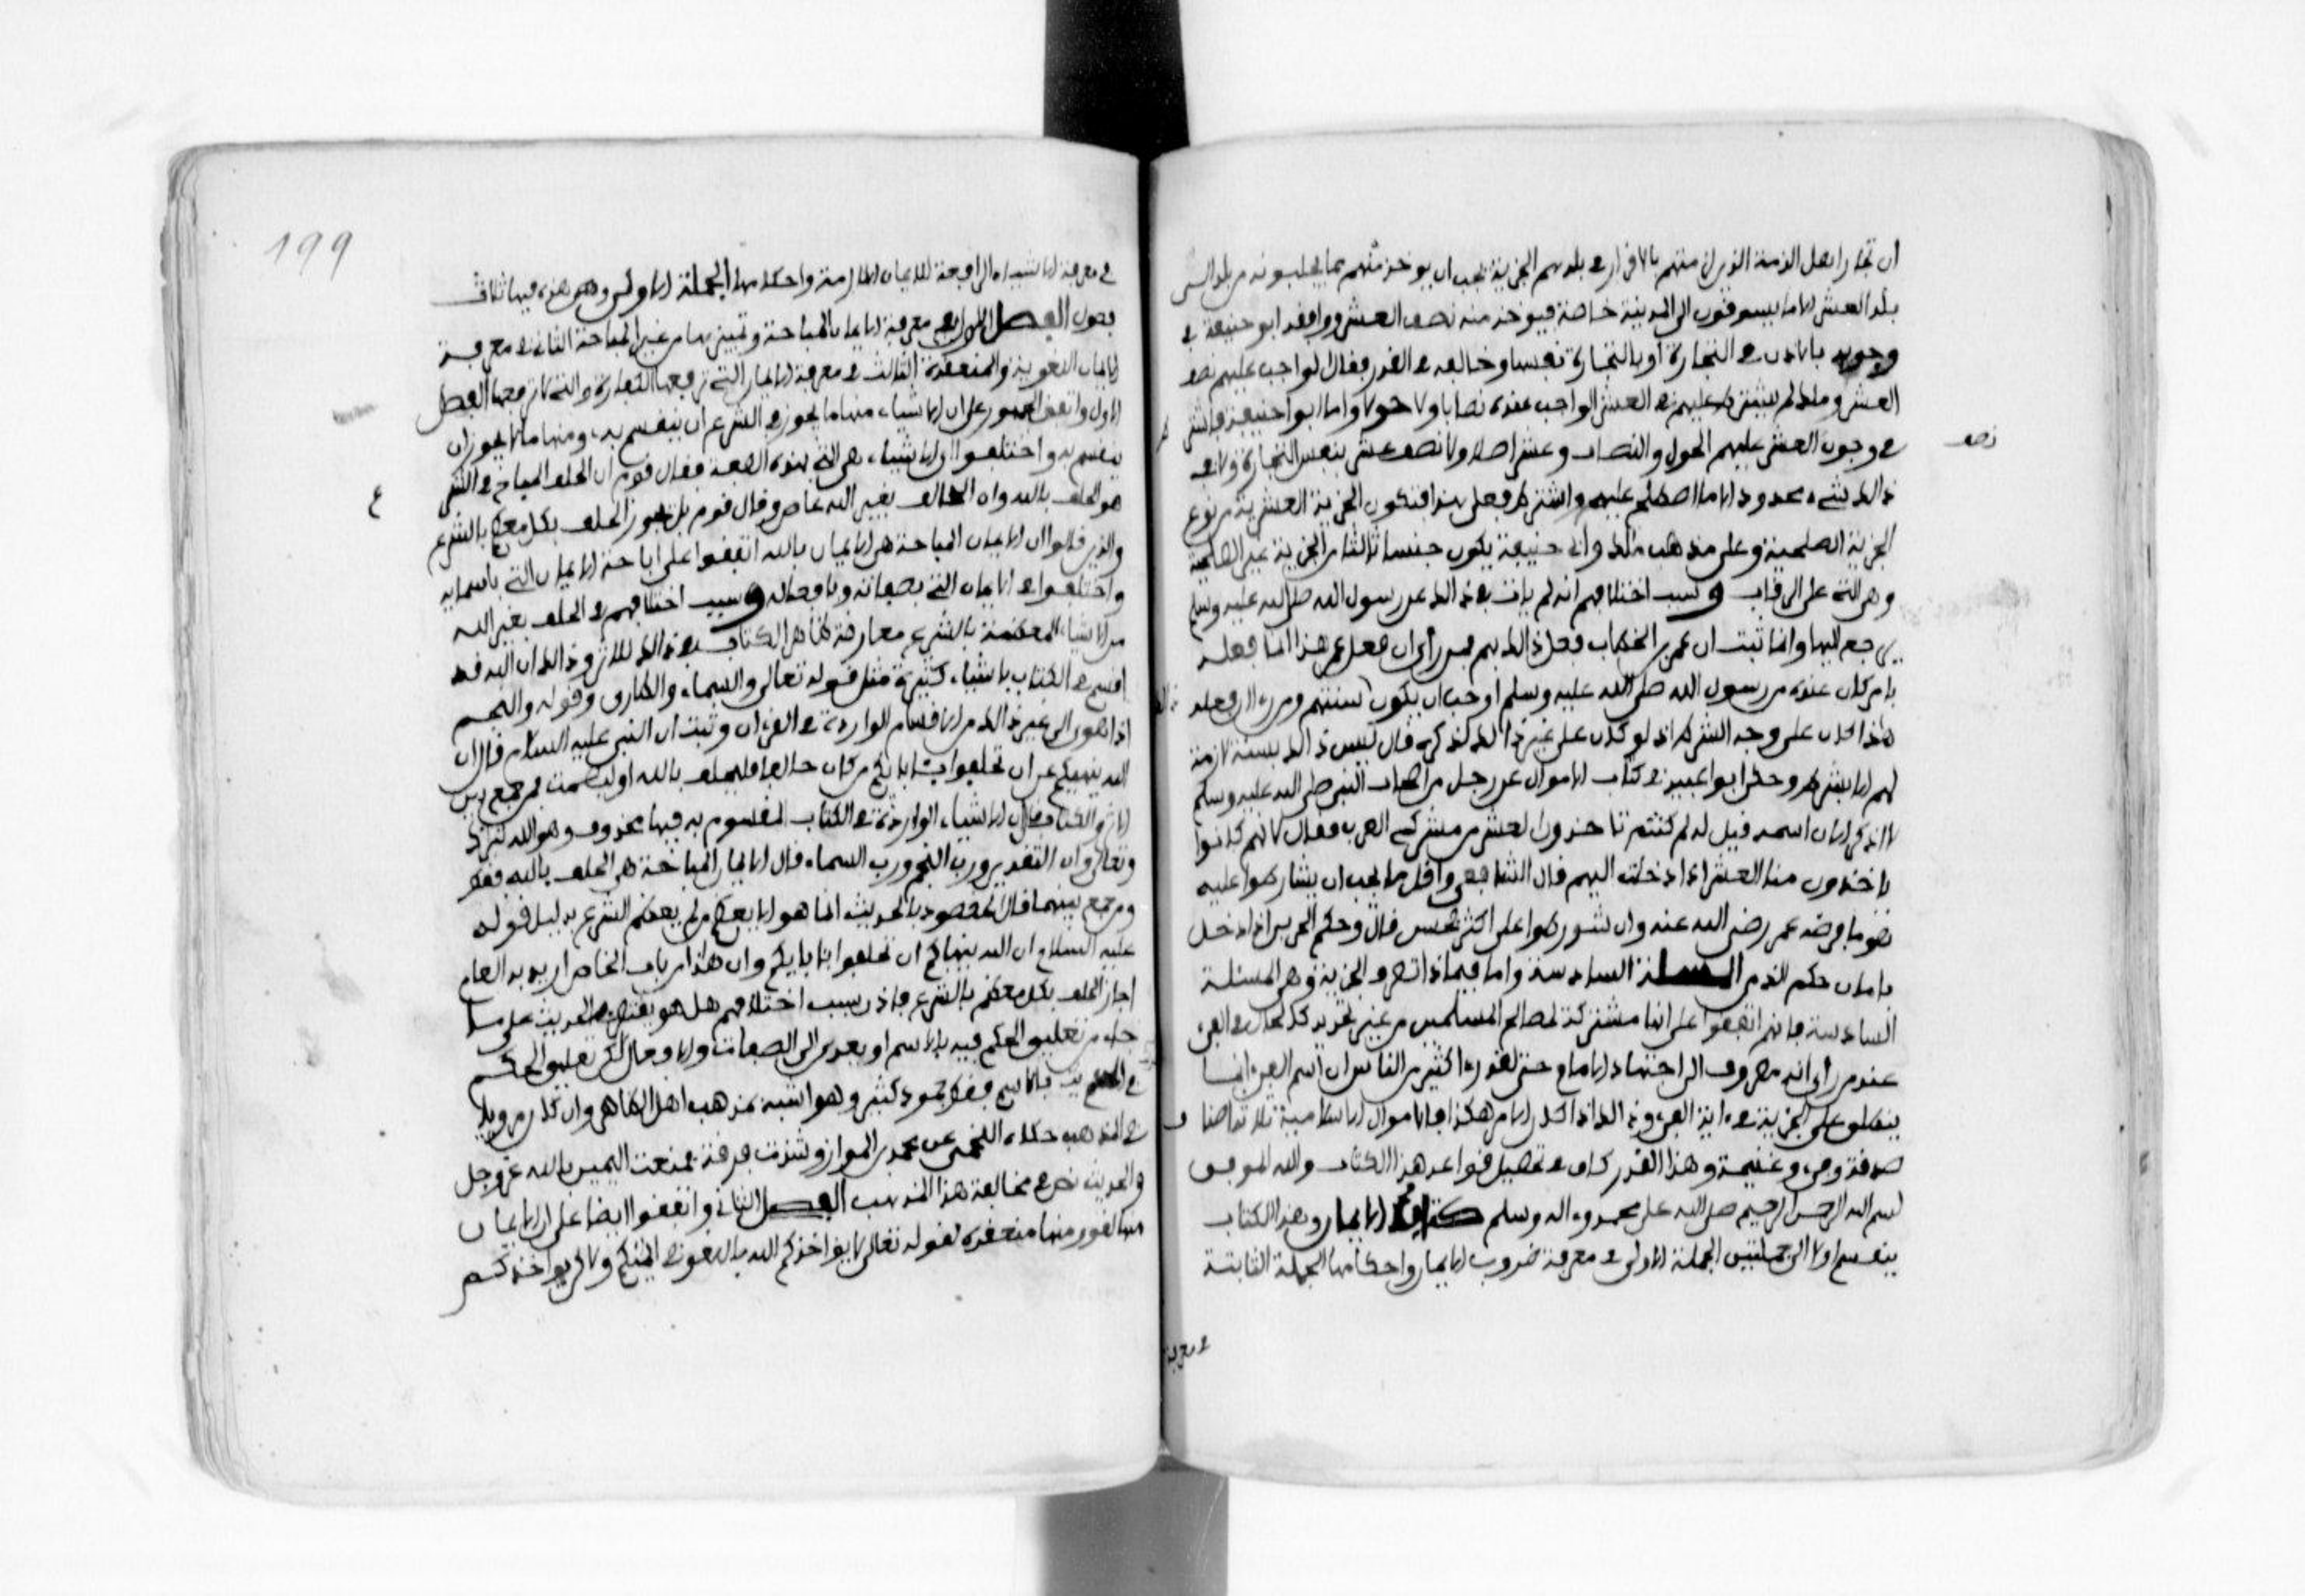 ان تجار اهل الذمة الذين لزمتهم بالاقرار في بلدهم الجزية يجب ان يوخذ منهم مما يجلبونه من بلد الى
بلد العشر الا ما يسوقون الى المدينة خاصة فيوخذ منه نصف العشر ووافقه ابو حنيفة في
وجوبه بالاذن في التجارة او بالتجارة نفسها وخالفه في القدر فقال الواجب عليهم نصف
العشر ومالك لم يشترط عليهم في العشر الواجب عنده نصابا ولا حولا واما ابو حنيفة فاشترط
في وجوب العشر عليهم الحول والنصاب وعشر اصلا ولا نصف عشر بنفس التجارة ولا في
نصف
ذالك شيء محدود الا ما اصطلح عليه واشترط فعلى هذا تكون الجزية العشرية من نوع
الجزية الصلحية وعلى مذهب مالك وابي حنيفة يكون جنسا ثالثا من الجزية غير الصلحية
وهي التي على الرقاب وسبب اختلافهم انه لم يات في ذالك عن رسول الله صلى الله عليه وسلم
يرجع اليها وانما ثبت ان عمر بن الخطاب فعل ذالك بهم فمن رأى ان فعل عمر هذا انما فعله
بامر كان عنده من رسول الله صلى الله عليه وسلم اوجب ان يكون سنتهم ومن رءا ان فعله
هذا كان على وجه الشرط اذ لو كان على غير ذالك لذكره قال ليس ذالك بسنة لازمة
لهم الا بشرط وحكى ابو عبيد في كتاب الاموال عن رجل من اصحاب النبي صلى الله عليه وسلم
لا اذكر الان اسمه قيل له لم كنتم تاخذون العشر من مشركي العرب فقال لانهم كانوا
ياخذون منا العشر اذا دخلنا اليهم قال الشافعي واقل ما يجب ان يشارطوا عليه
هو ما فرضه عمر رضي الله عنه وان شورطوا على اكثر فحسن قال وحكم الحربي اذا دخل
بامان حكم الذمي المسئلة السادسة واما فيماذا تصرف الجزية وهي المسئلة
السادسة فانهم اتفقوا على انها مشتركة لمصالح المسلمين من غير تحديد كالحال في الفيء
عند من راى انه مصروف الى اجتهاد الامام حتى لقد رءا كثير من الناس ان اسم الفيء انما
ينطلق على الجزية في ءاية الفيء واذا كان الامر هكذا فالاموال الاسلامية ثلاثة اصناف
صدقة وفيء وغنيمة وهذا القدر كاف في تحصيل قواعد هذا الكتاب والله الموفق
بسم الله الرحمن الرحيم صلى الله على محمد وءاله وسلم كتاب الايمان وهذا الكتاب
ينقسم اولا الى جملتين الجملة الاولى في معرفة ضروب الايمان واحكامها الجملة الثانية
في معرفة
199
في معرفة الاشياء الرافعة للايمان اللازمة واحكامها الجملة الاولى وهي هذه فيها ثلاث
فصول الفصل الاول في معرفة الايمان المباحة وتمييزها من غير المباحة الثاني في معرفة
الايمان اللغوية والمنعقدة الثالث في معرفة الايمان التي ترفعها الكفارة والتي لا ترفعها الفصل
الاول واتفق الجمهور على ان الاشياء منها ما يجوز في الشرع ان يقسم به ومنها ما لا يجوز ان
يقسم به واختلفوا اي الاشياء هي التي بهذه الصفة فقال قوم ان الحلف المباح في الشرع
هو الحلف بالله وان الحالف بغير الله عاص وقال قوم بل يجوز الحلف بكل معظم بالشرع
والذين قالوا ان الايمان المباحة هي الايمان بالله اتفقوا على اباحة الايمان التي باسمائه
واختلفوا في الايمان التي بصفاته وبافعاله وسبب اختلافهم في الحلف بغير الله
من الاشياء المعظمة بالشرع معارضة ظاهر الكتاب في ذالك للاثر وذالك ان الله قد
اقسم في الكتاب باشياء كثيرة مثل قوله تعالى والسماء والطارق وقوله والنجم
اذا هوى الى غير ذالك من الاقسام الواردة في القرءان وثبت ان النبي عليه السلام قال ان
الله ينهيكم عن ان تحلفوا بئابائكم من كان حالفا فليحلف بالله او ليصمت فمن جمع بين
الاثر والكتاب بان قال ان الاشياء الواردة في الكتاب المقسوم به فيها محذوف وهو الله تبارك
وتعالى وان التقدير ورب النجم ورب السماء قال الايمان المباحة هي الحلف بالله فقط
ومن جمع بينهما فان المقصود بالحديث انما هو الا يعظم من لم يعظم الشرع بدليل قوله
عليه السلام ان الله ينهاكم ان تحلفوا بئابائكم وان هذا من باب الخاص اريد به العام
اجاز الحلف بكل معظم بالشرع فاذن سبب اختلافهم هل هو يقتصر بالحديث على ما
جاء من تعليق الحكم فيه بالاسم او يعدى الى الصفات والافعال لكن تعليق الحكم
في الحديث بالاسم فقط جمود كثير وهو اشبه بمذهب اهل الظاهر وان كان مرويا
في المذهب حكاه اللخمي عن محمد بن المواز وشذت فرقة فمنعت اليمين بالله عز وجل
والحديث نص في مخالفة هذا المذهب الفصل الثاني واتفقوا ايضا على ان الايمان
منها لغو ومنها منعقدة لقوله تعالى لا يؤاخذكم الله باللغو في ايمنكم ولاكن يواخذكم